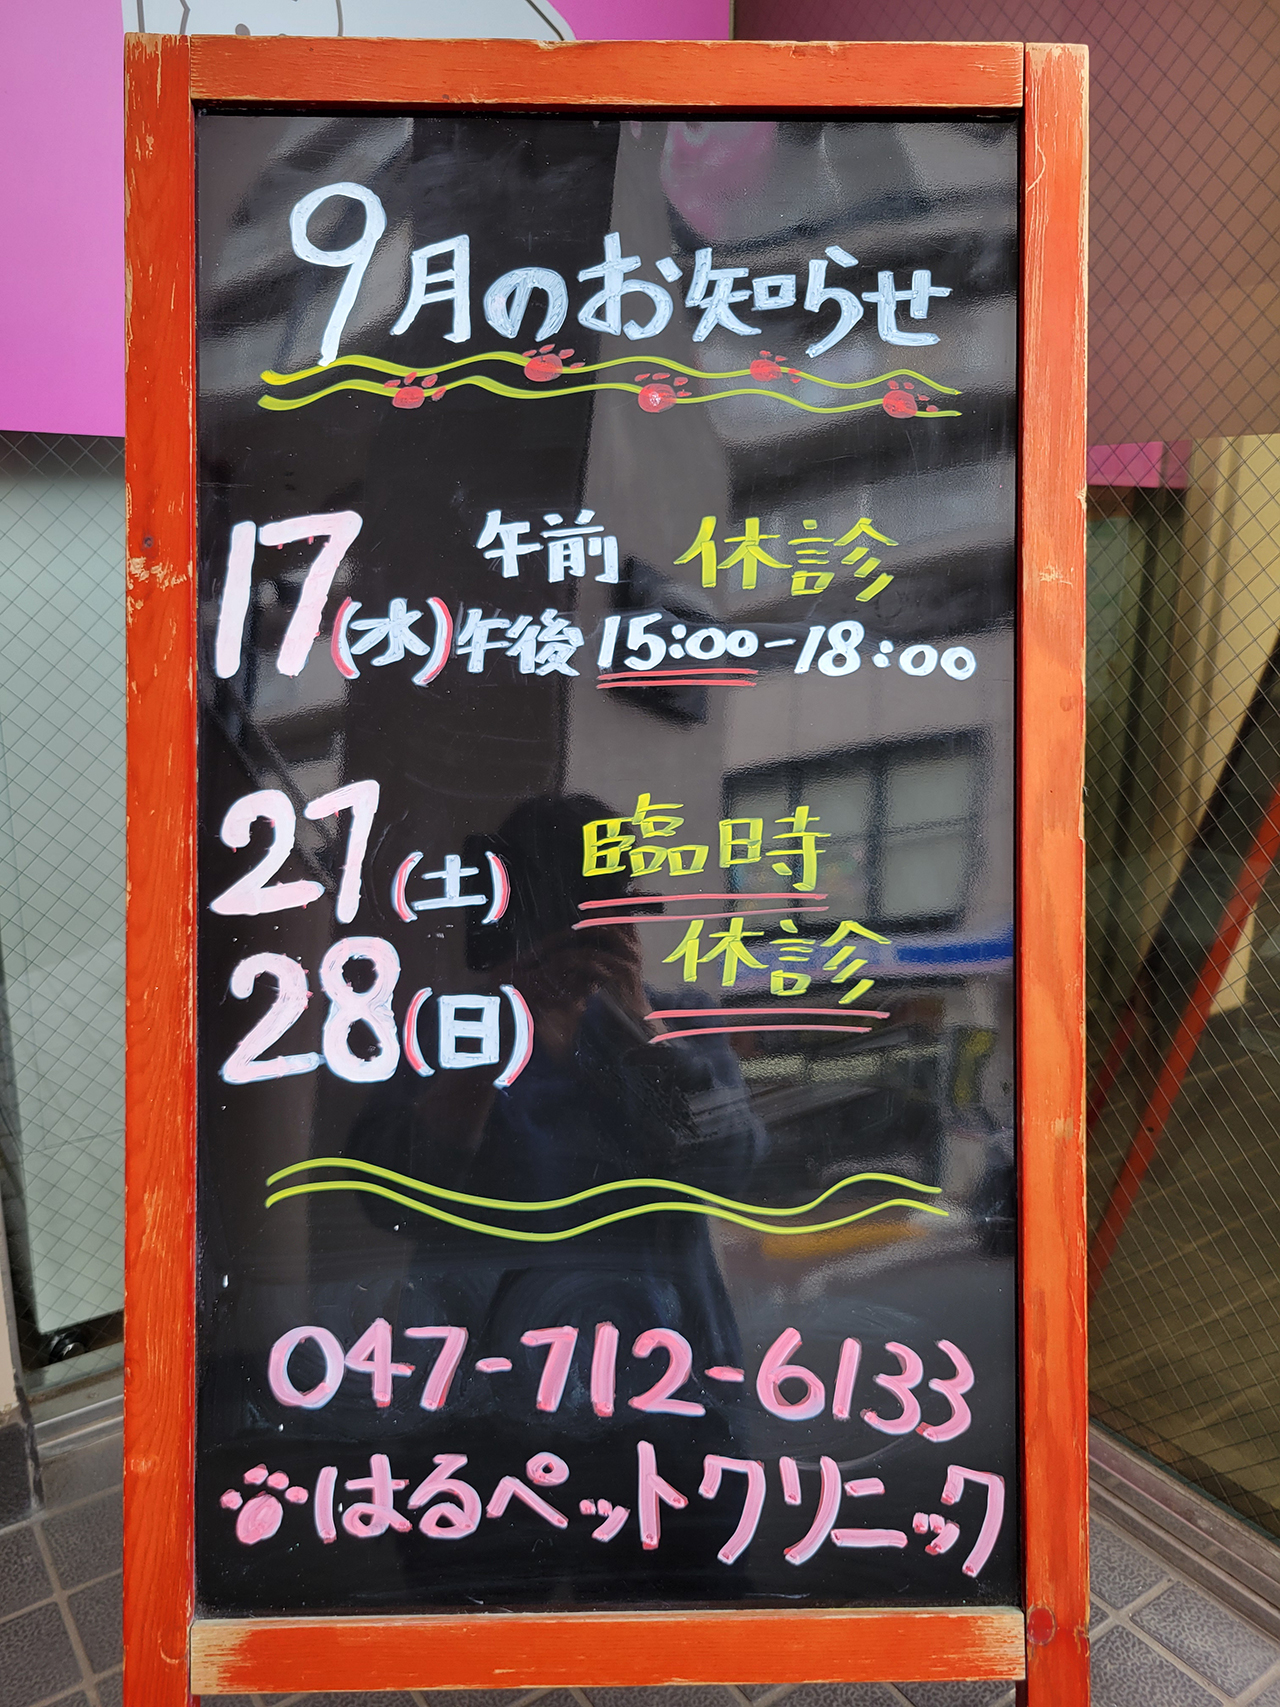 9月のお知らせ
17(水) 午前 休診
午後 15:00-18:00
27(土) 臨時
28(日) 休診
047-712-6133
はるペットクリニック